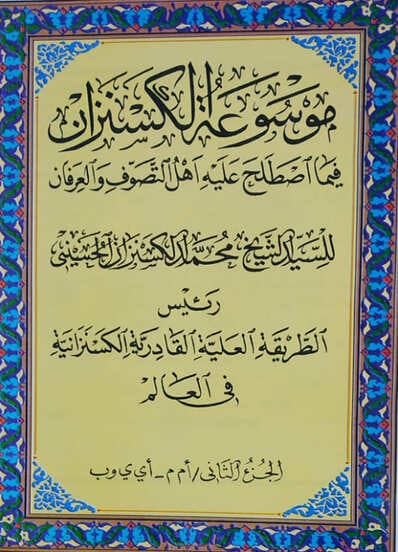 موسوعة الكسنزان
فيما اصطلح عليه أهل التصوف والعرفان
للسيد الشيخ محمد الكسنزان الحسيني
رئيس
الطريقة العلية القادرية الكسنزانية
في العالم
الجزء الثاني / أ م م - أ ي ي و ب